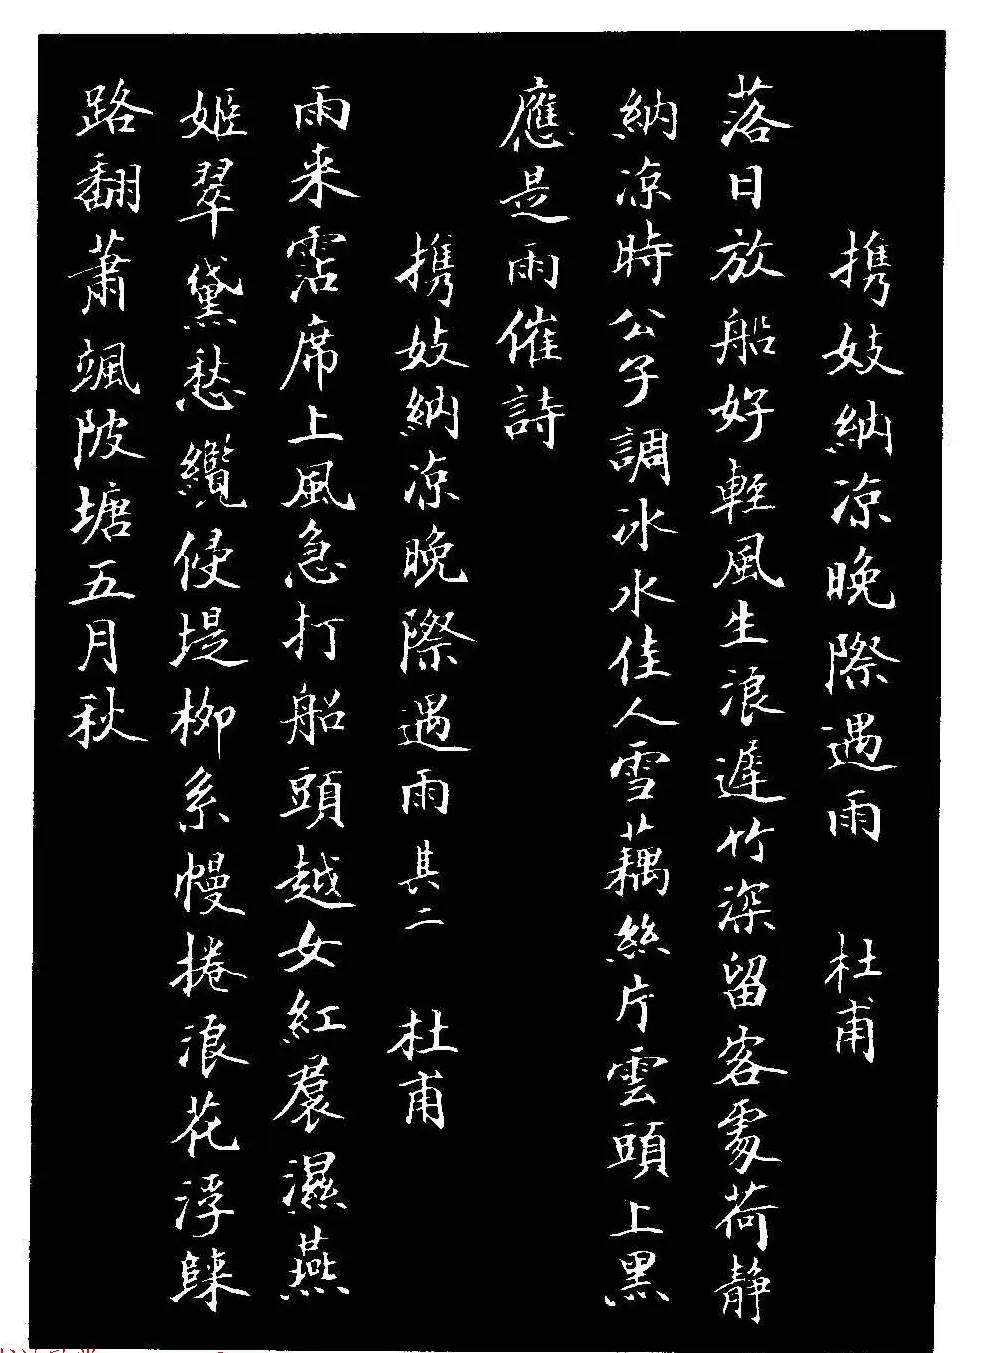 携妓納凉晚際遇雨 杜甫
落日放船好輕風生浪遲竹深留客處荷静
納凉時公子調冰水佳人雪藕絲片雲頭上黑
應是雨催詩
携妓納凉晚際遇雨其二 杜甫
雨来霑席上風急打船頭越女紅裠濕燕
姬翠黛愁纜侵堤柳系幔捲浪花浮歸
路翻蕭颯陂塘五月秋